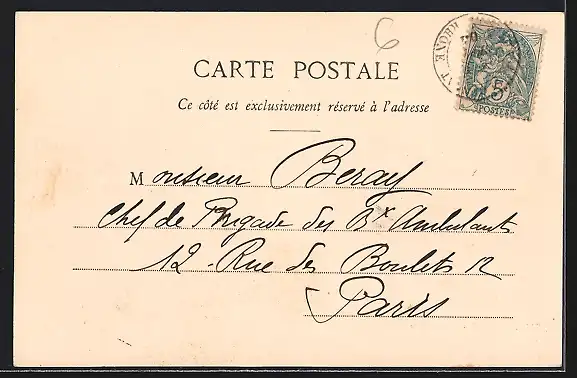 6
RHONE
5
POSTES
CARTE POSTALE
Ce côté est exclusivement réservé à l'adresse
Monsieur Beray
Chef de Brigade des Bx Ambulants
12 Rue des Boulets 12
Paris